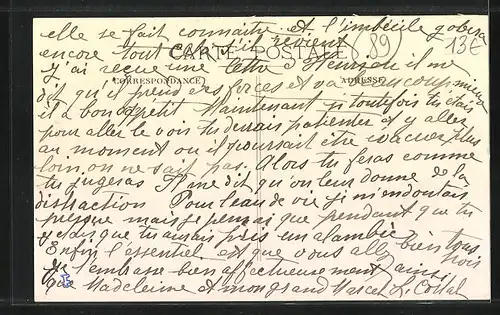 elle se fait connaitre et l'imbécile gobera
encore tout s'il revient
CARTE POSTALE
89
13€
j'ai reçue une lettre d'Henri ou il me
CORRESPONDANCE
ADRESSE
dit qu'il prend des forces et va beaucoup mieux
il a bon appétit Maintenant si toutefois tu étais
pour aller le voir tu devrais patienter d'y aller
au moment ou il pourrait être évacuer plus
loin, on ne sait pas. Alors tu feras comme
tu jugeras Il me dit qu'on leur donne de la
distraction Pour l'eau de vie je m'en doutais
presque mais je pensai que pendant que tu
y étais que tu aurais pris un alambic
Enfin l'essentiel est que vous allez bien tous
trois
Je t'embrasse bien affectueusement ainsi
que Madeleine et mon grand Marcel